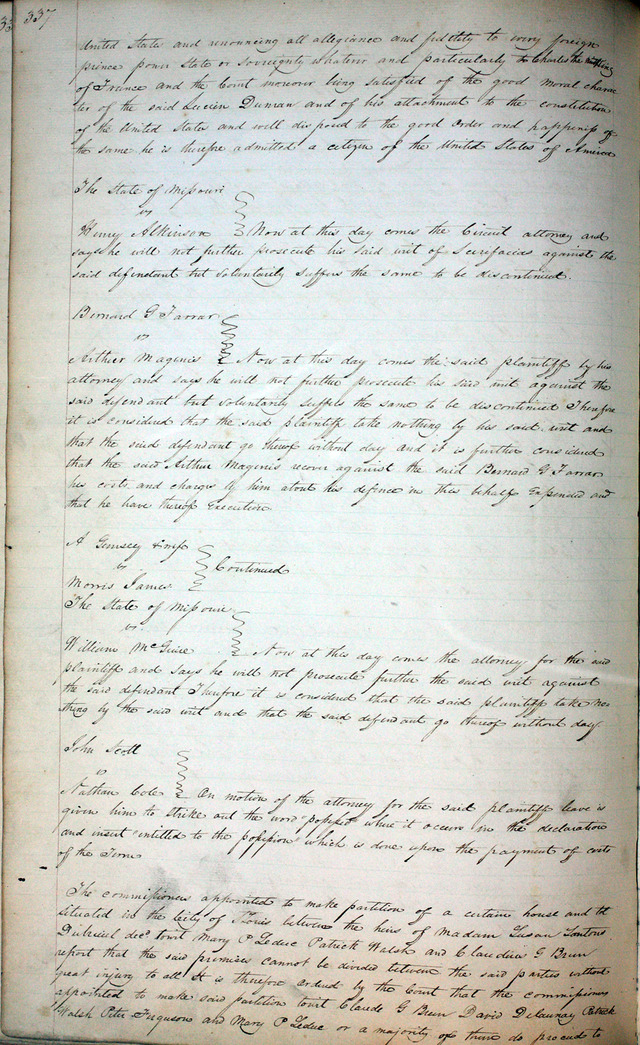 337
United State and renouncing all allegiance and fidelity to every foreign
prince power State or sovereignty whatever and particularly to Charles the
of France and the Court moreover being satisfied of the good moral charac
ter of the said Lucien Duman and of his attachment to the constitution
of the United States and well disposed to the good order and happiness of
the same he is therefore admitted a citizen of the United States of America
The State of Missouri
vs
Henry Atkinson Now at this day comes the Circuit attorney and
says he will not further prosecute his said writ of Scirifacias against the
said defendant but voluntarily suffers the same to be discontinued.
Bernard G Farrar
vs
Arthur Magenis Now at this day comes the said plaintiff by his
attorney and says he will not further prosecute his said writ against the
said defendant but voluntarily suffers the same to be discontinued Therefore
it is considered that the said plaintiff take nothing by his said writ and
that the said defendant go thereof without day and it is further considered
that the said Arthur Magenis recover against the said Bernard G Farrar
his costs and charges by him about his defence in this behalf Expended and
that he have thereof Execution
A
vs Continued
Morris James
The State of Missouri
vs
William McGuire Now at this day comes the attorney for the said
plaintiff and says he will not prosecute further the said writ against
the said defendant Therefore it is considered that the said plaintiff take no
thing by the said writ and that the said defendant go thereof without day
John Scott
vs
Nathan Cole On motion of the attorney for the said plaintiff leave is
given him to strike out the word "possess" where it occurs in the declaration
and insert "entitled to the possession" which is done upon the payment of costs
of the Term
The commissioners appointed to make partition of a certain house and
situated in the City of St Louis between the heirs of Madam Susan
Dubreuil decd towit Mary P Leduc Patrick Walsh and Claudius G Brun
report that the said premises cannot be divided between the said parties without
great injury to all It is therefore ordered by the Court that the commissioners
appointed to make said partition towit Claude G Brun David Delaunay Patrick
Walsh Peter Ferguson and Mary P Leduc or a majority of them do proceed to